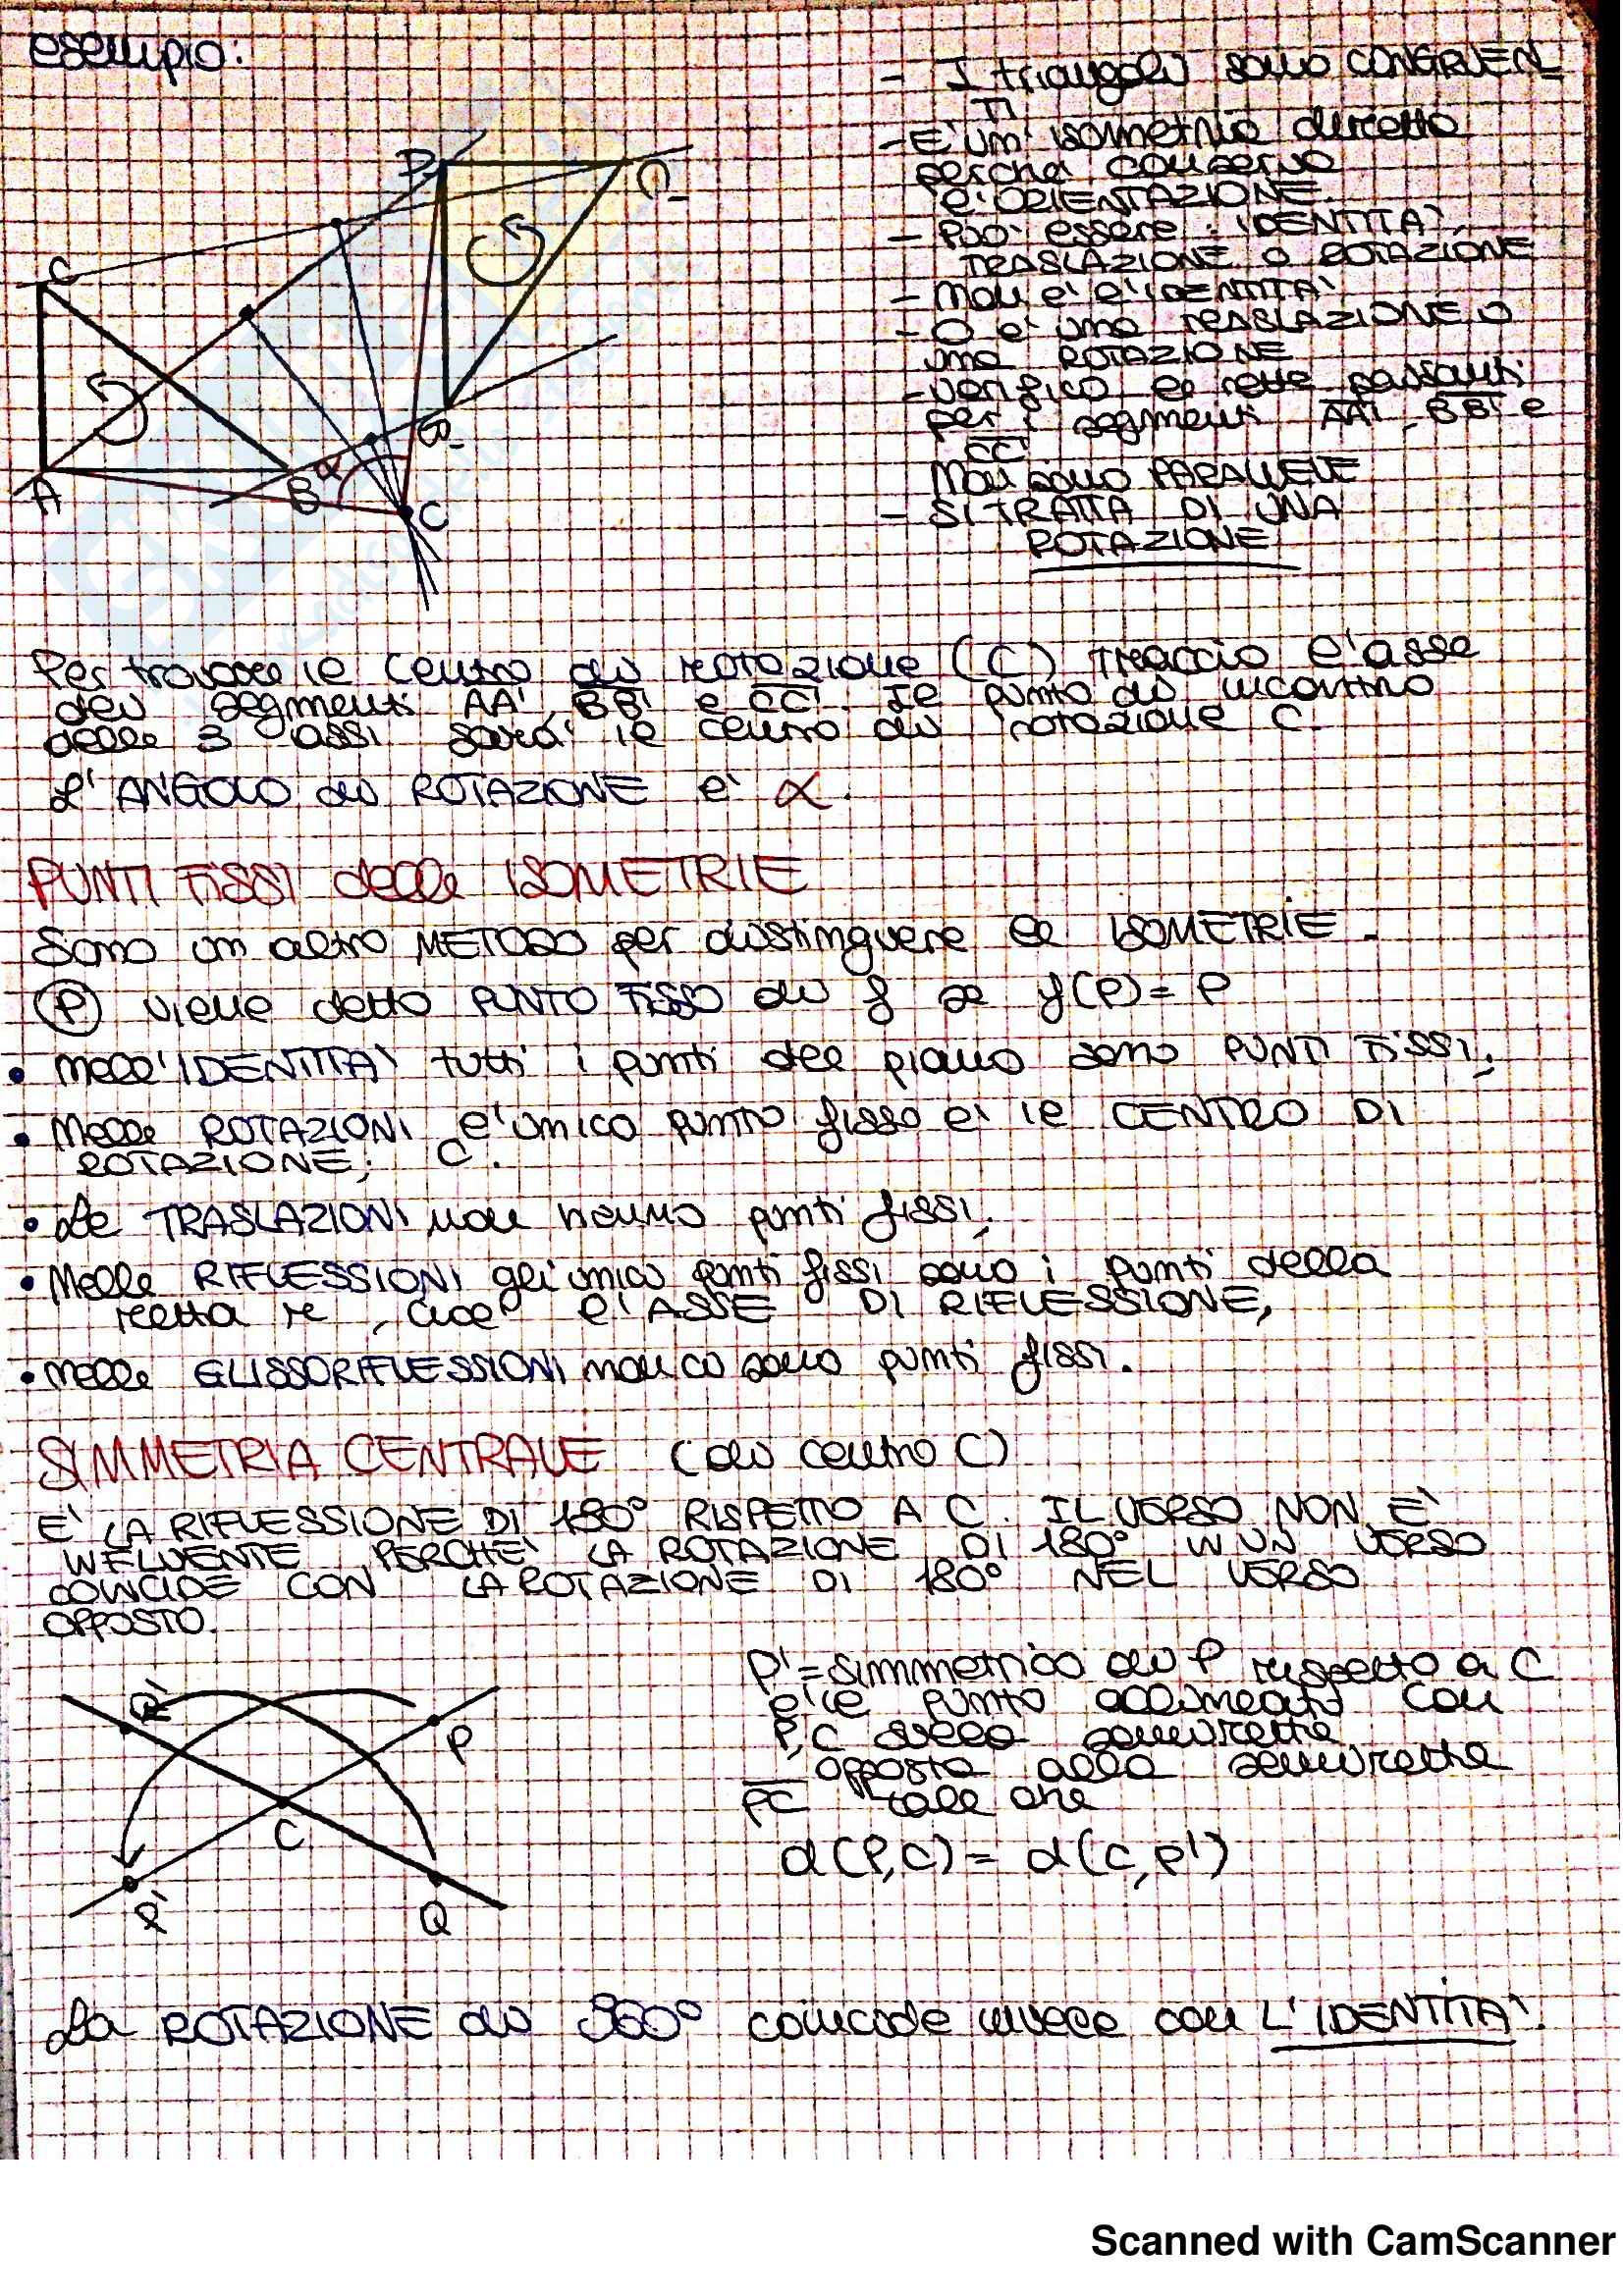 esempio:
- I triangoli sono CONGRUEN
TI
- E' un' isometria diretta
perché conserva
l'ORIENTAZIONE.
- Può essere: IDENTITA',
TRASLAZIONE O ROTAZIONE
- Non è l'IDENTITA'
- O è una TRASLAZIONE O
una ROTAZIONE
- verifico le rette passanti
per i segmenti AA', BB' e
CC'
Non sono PARALLELE
- SI TRATTA DI UNA
ROTAZIONE
C
A
B
α
C
B'
Per trovare il centro di rotazione (C) traccio l'asse
dei segmenti AA', BB' e CC'. Il punto di incontro
delle 3 assi sarà il centro di rotazione C.
L'ANGOLO di ROTAZIONE è α.
PUNTI FISSI delle ISOMETRIE
Sono un altro METODO per distinguere le ISOMETRIE.
P viene detto PUNTO FISSO di f se f(P) = P
• nell'IDENTITA' tutti i punti del piano sono PUNTI FISSI;
• Nelle ROTAZIONI l'unico punto fisso è il CENTRO DI
ROTAZIONE; C.
• Le TRASLAZIONI non hanno punti fissi;
• Nelle RIFLESSIONI gli unici punti fissi sono i punti della
retta r, cioè l'ASSE DI RIFLESSIONE;
• nelle GLISSORIFLESSIONI non ci sono punti fissi.
SIMMETRIA CENTRALE (di centro C)
E' LA RIFLESSIONE DI 180° RISPETTO A C. IL VERSO NON E'
INFLUENTE PERCHE' LA ROTAZIONE DI 180° IN UN VERSO
COINCIDE CON LA ROTAZIONE DI 180° NEL VERSO
OPPOSTO.
P' = simmetrico di P rispetto a C
è il punto allineato con
P, C sulla semiretta
opposta alla semiretta
PC tale che
d(P,C) = d(C,P')
Q'
P
C
P'
Q
La ROTAZIONE di 360° coincide invece con L'IDENTITA'.
Scanned with CamScanner